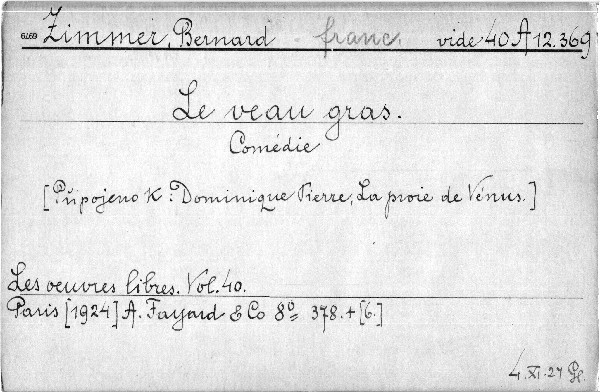 6469 Zimmer, Bernard franc. vide 40 A 12.369
Le veau gras.
Comédie
[Připojeno k: Dominique Pierre, La proie de Vénus.]
Les oeuvres libres. Vol. 40.
Paris [1924] A. Fayard & Co 8° 378.+[6.]
4.XI.27